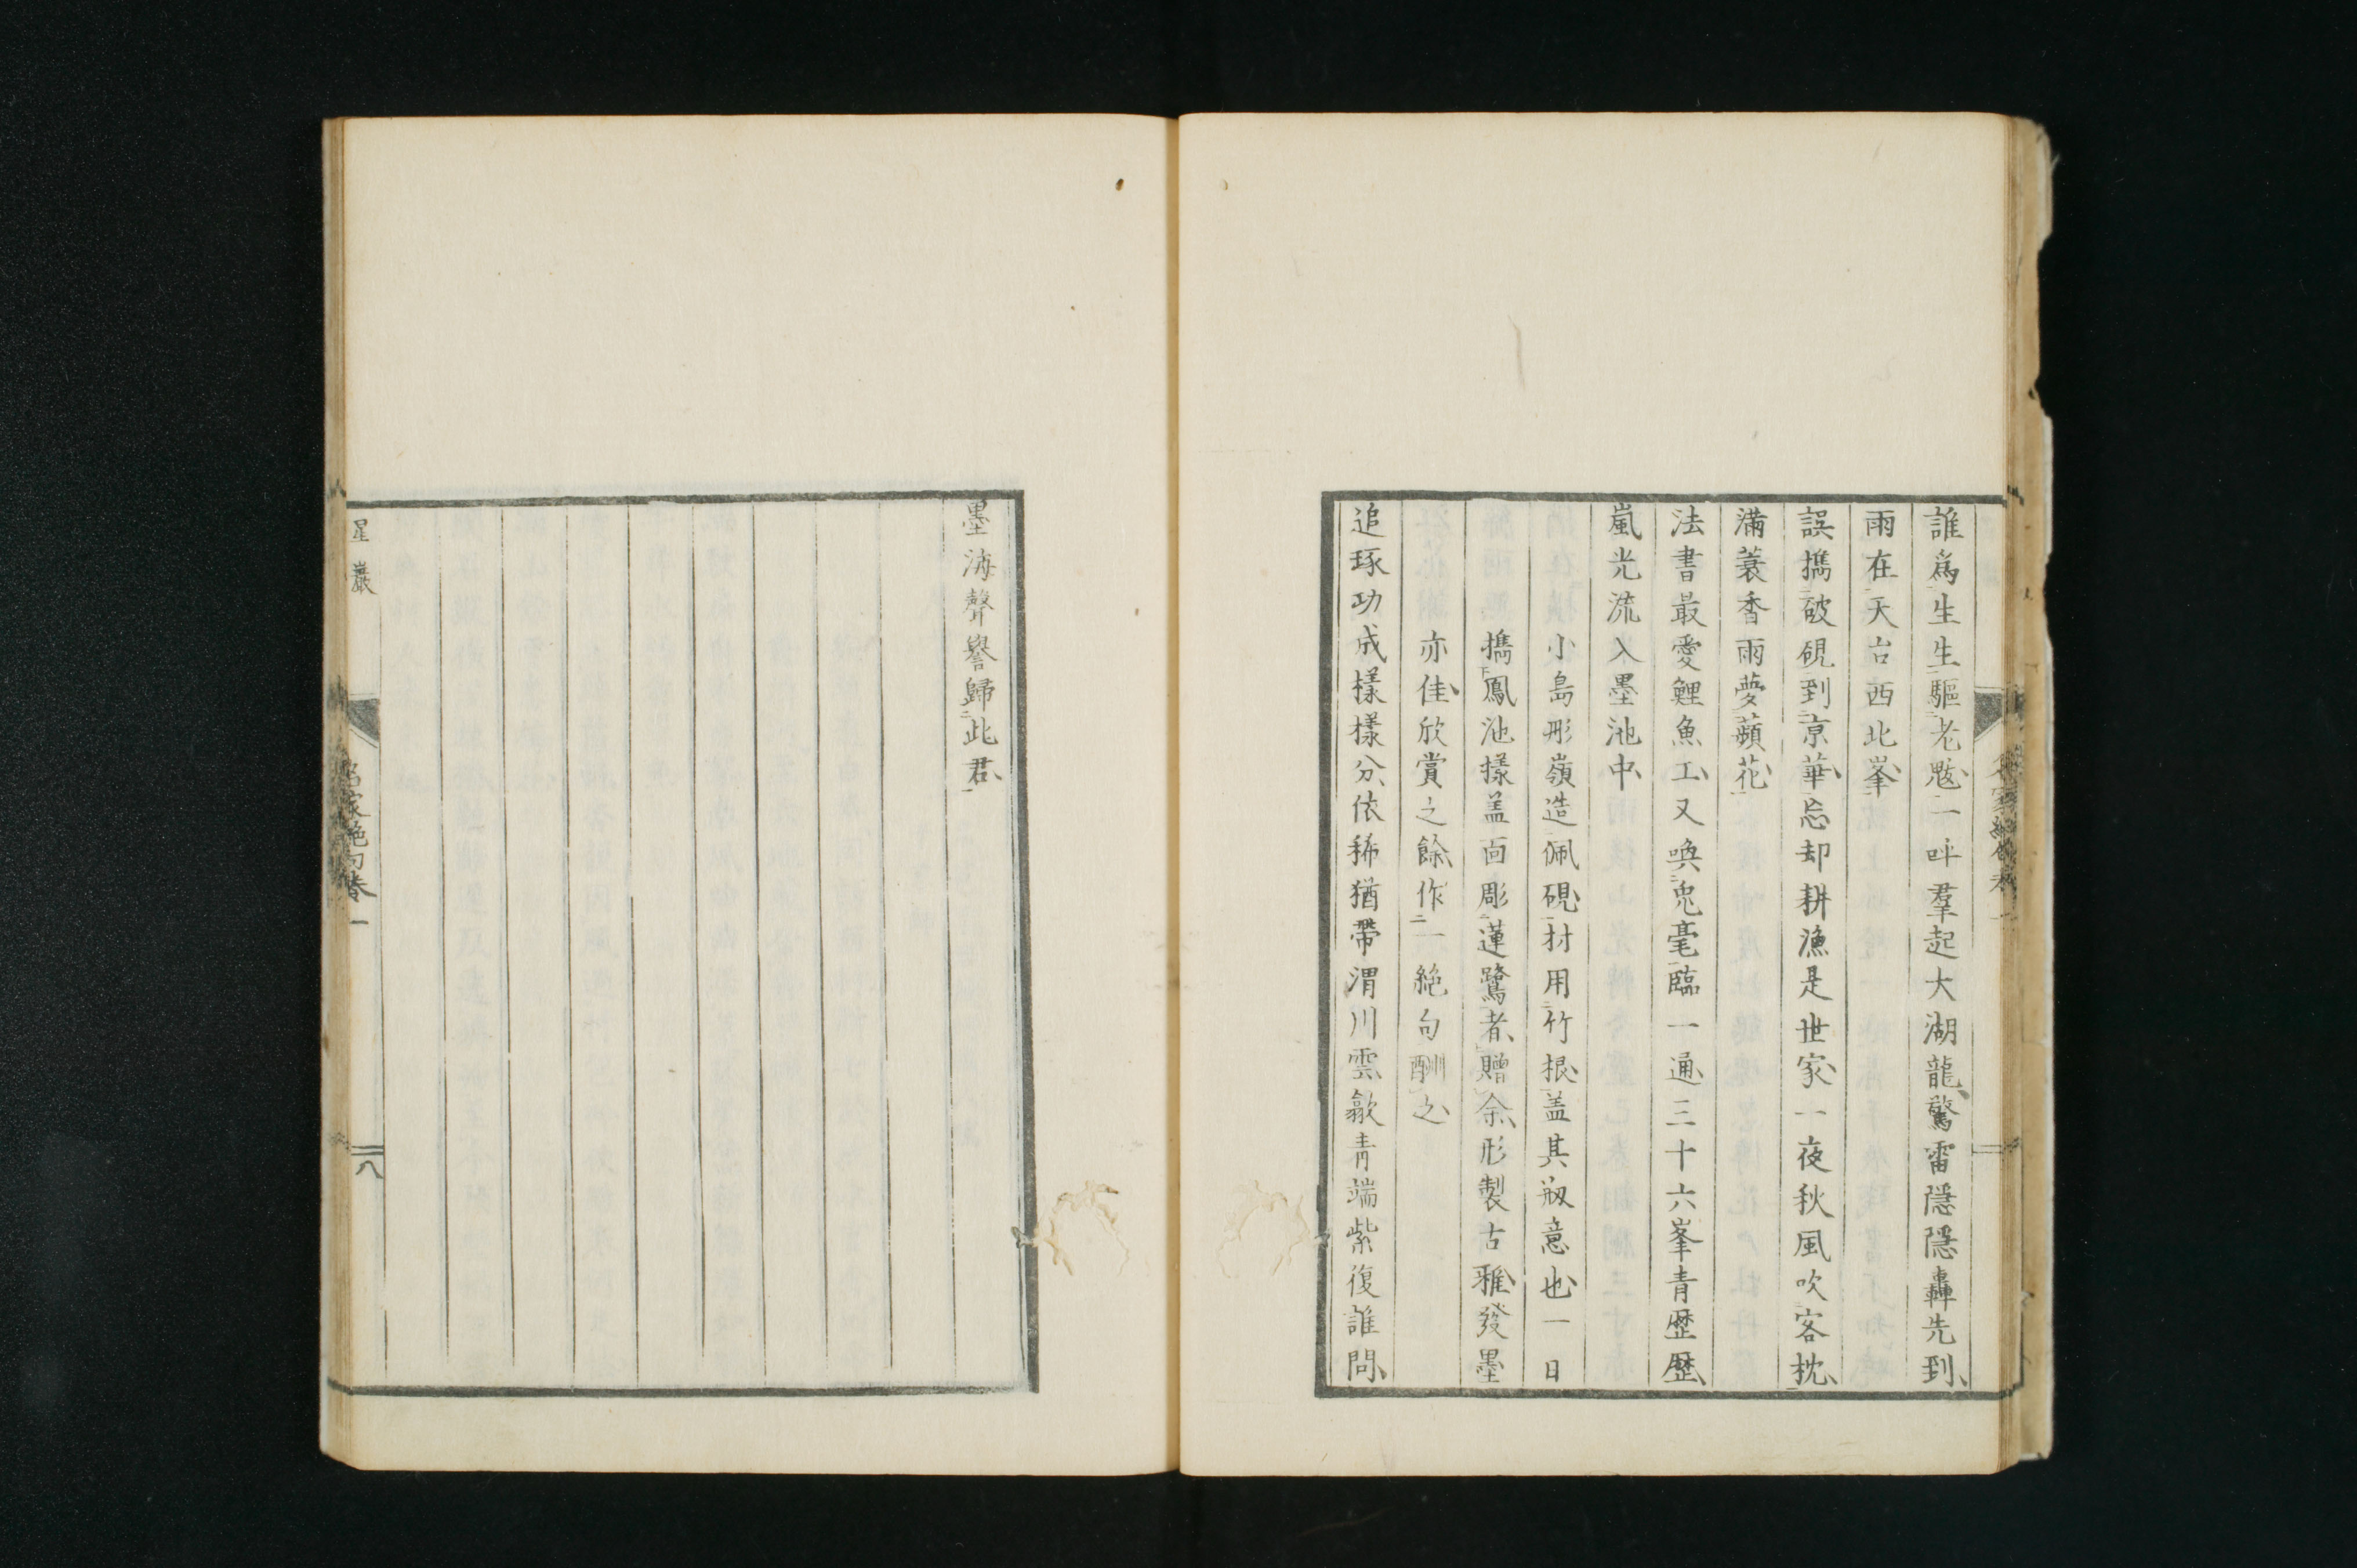 誰爲生生驅老魃一呼羣起大湖龍驚雷隱隱轟先到
雨在天台西北峯
誤擕破硯到京華忘却耕漁是世家一夜秋風吹客枕
滿蓑香雨夢蘋花
法書最愛鯉魚工又喚兎毫臨一通三十六峯青歷歷
嵐光流入墨池中
小島彤嶺造佩硯材用竹根盖其剏意也一日
擕鳳池㨾盖面彫蓮鷺者贈余形製古雅發墨
亦佳欣賞之餘作一絶句酬之
追琢功成樣樣分依稀猶帶渭川雲歙青端紫復誰問
墨海聲譽歸此君
星巖
名家絶句卷一
八